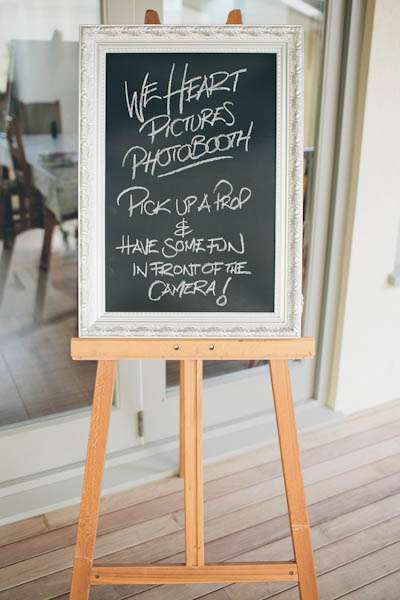 WE HEART
PICTURES
PHOTOBOOTH
PICK UP A PROP
&
HAVE SOME FUN
IN FRONT OF THE
CAMERA!